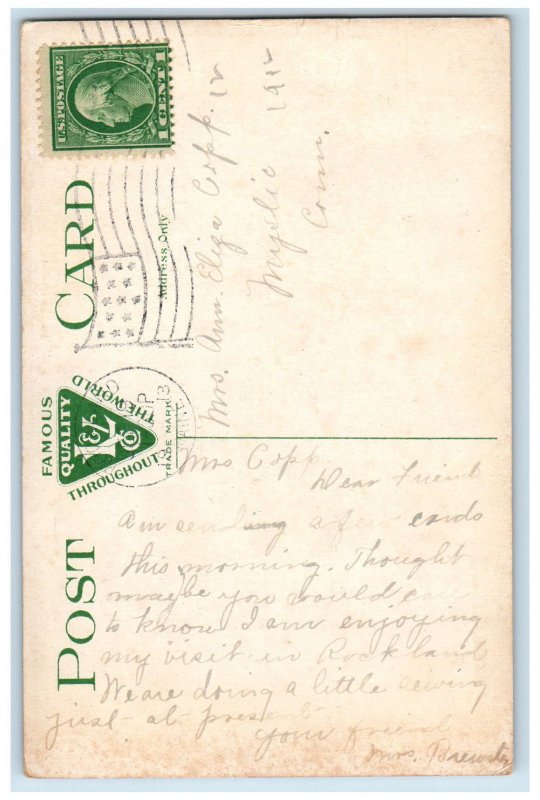 U.S. POSTAGE
1 CENT 1
POST CARD
Address Only
FAMOUS
QUALITY
THROUGHOUT
THE WORLD
TRADE MARK
Mrs. Ann Eliza Copp. 12
Mystic 1912
Conn.
Mrs Copp
Dear Friend
Am sending a few cards
this morning. Thought
maybe you would care
to know I am enjoying
my visit in Rockland
We are doing a little sewing
just-at-present-
your friend
Mrs. Brewster